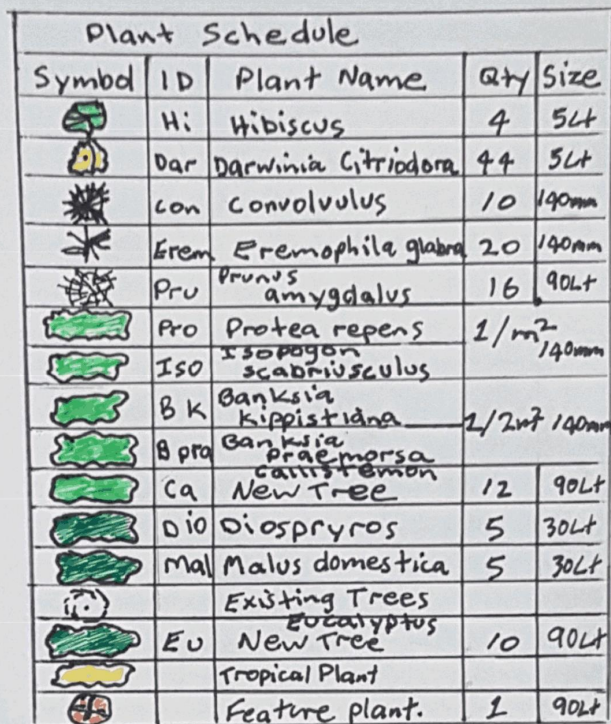 Plant Schedule
Symbol ID Plant Name Qty Size
Hi Hibiscus 4 5Lt
Dar Darwinia Citriodora 44 5Lt
Con Convolvulus 10 140mm
Erem Eremophila glabra 20 140mm
Pru Prunus amygdalus 16 90Lt
Pro Protea repens 1/m² 140mm
Iso Isopogon scabriusculus
BK Banksia Kippistiana 1/2m² 140mm
B pra Banksia praemorsa
Ca Callistemon New Tree 12 90Lt
Dio Diospryros 5 30Lt
Mal Malus domestica 5 30Lt
Existing Trees
Eu Eucalyptus New Tree 10 90Lt
Tropical Plant
Feature plant. 1 90Lt